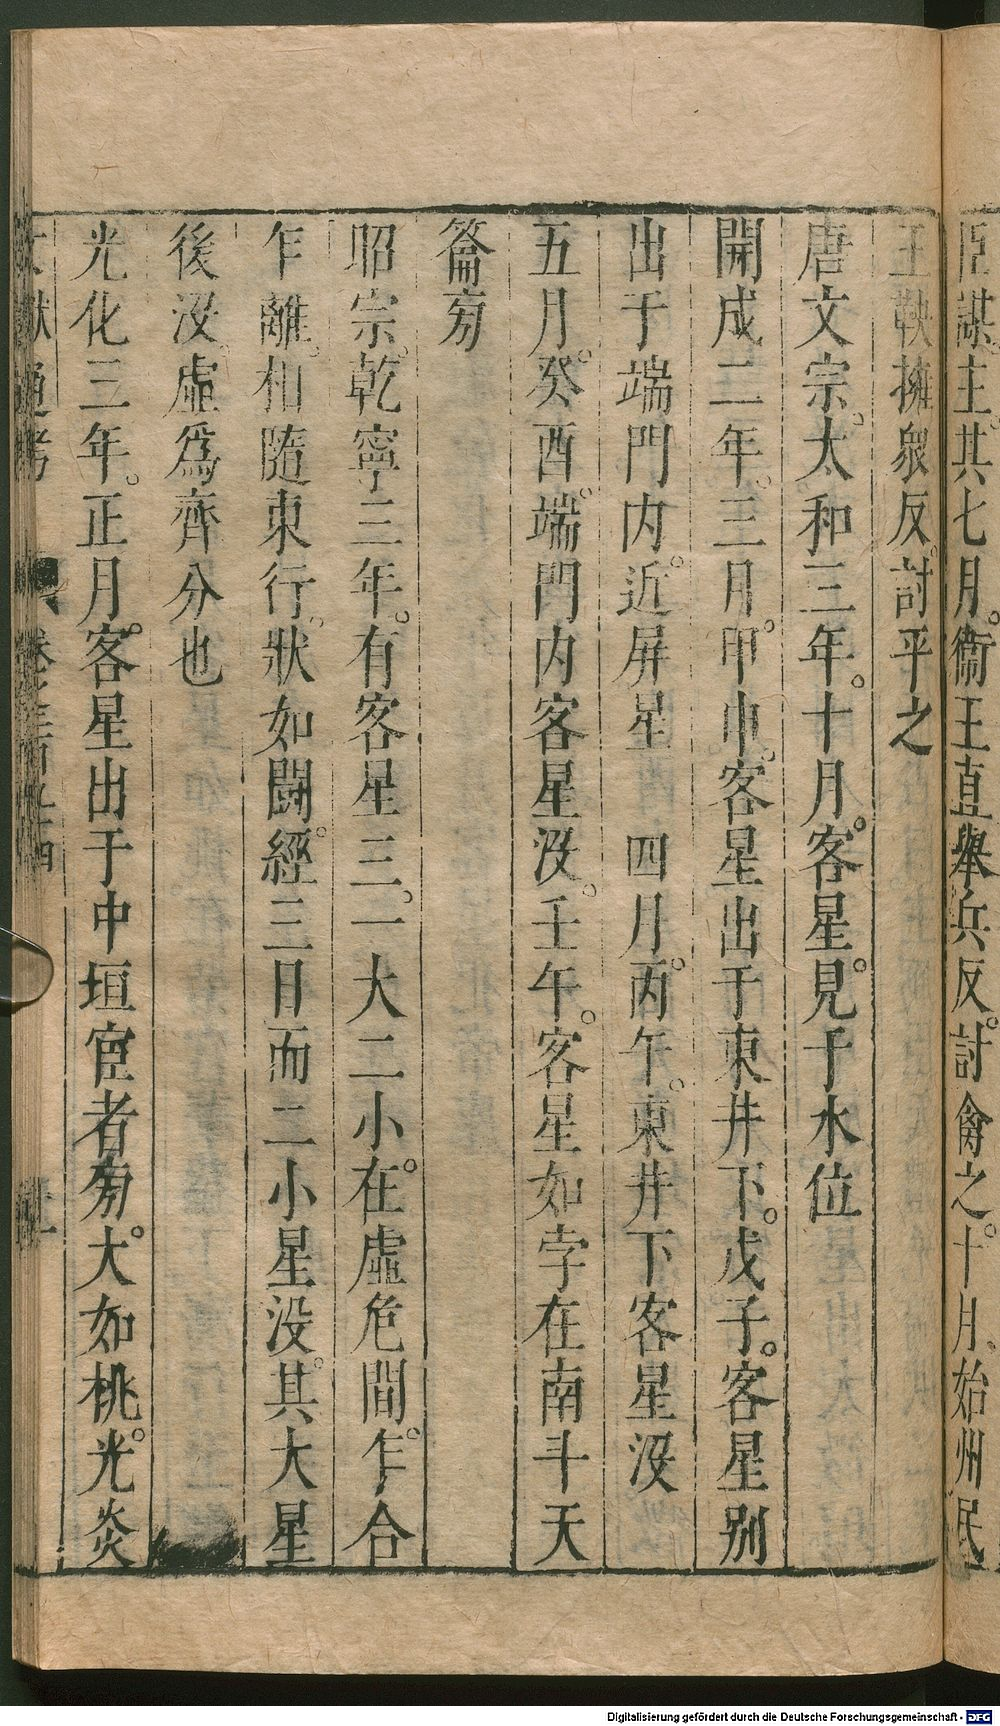 臣謀主其七月衞王直舉兵反討禽之十月始州民
王鞅擁衆反討平之
唐文宗太和三年十月客星見于水位
開成二年三月甲申客星出于東井下戊子客星別
出于端門内近屏星 四月丙午東井下客星没
五月癸酉端門内客星没壬午客星如孛在南斗天
籥旁
昭宗乾寧三年有客星三一大二小在虛危間乍合
乍離相隨東行狀如鬬經三日而二小星没其大星
後没虛爲齊分也
光化三年正月客星出于中垣宦者旁大如桃光炎
文獻通考 卷二百九十四
Digitalisierung gefördert durch die Deutsche Forschungsgemeinschaft - DFG